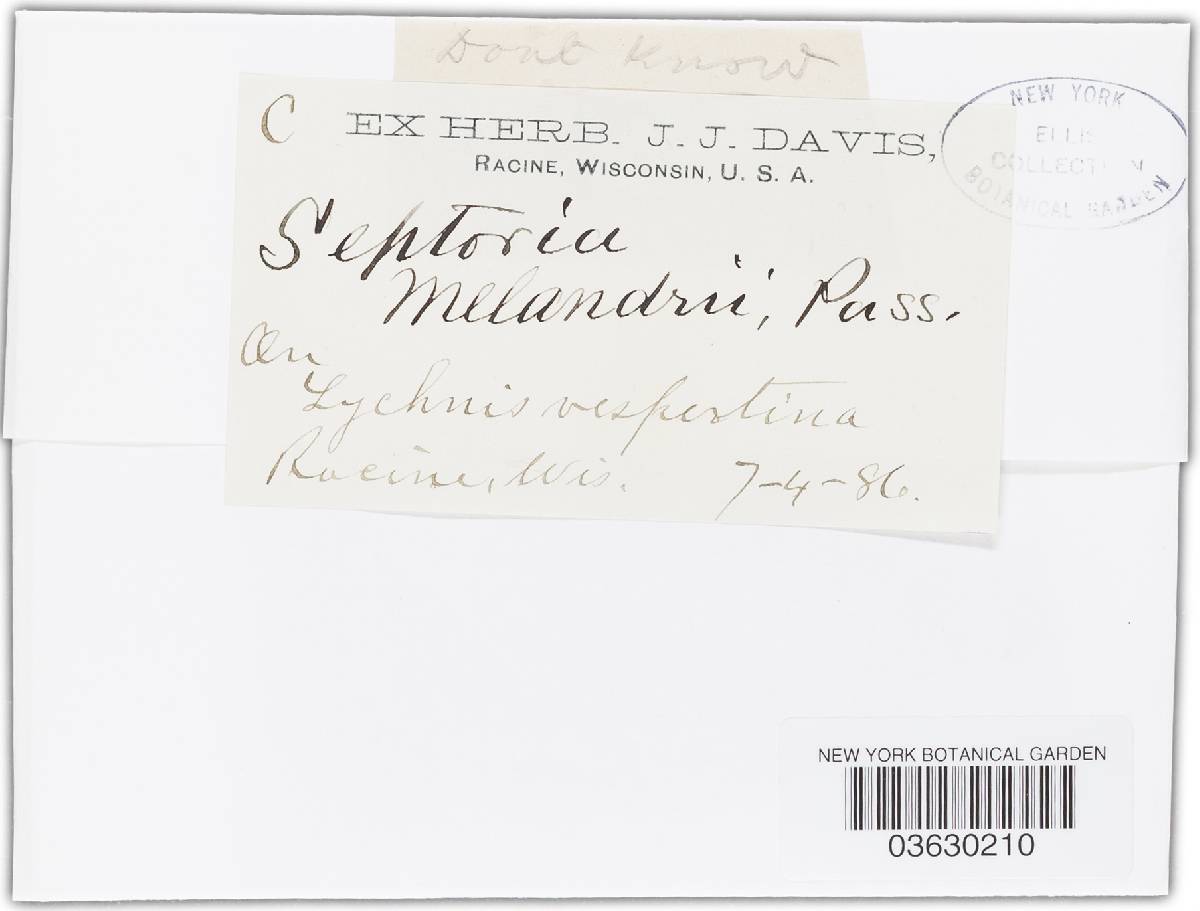 Dont Know
C EX HERB. J. J. DAVIS,
RACINE, WISCONSIN, U. S. A.
NEW YORK
ELLIS
COLLECTION
BOTANICAL GARDEN
Septoria
Melandrii, Pass.
On
Lychnis vespertina
Racine, Wis. 7-4-86.
NEW YORK BOTANICAL GARDEN
03630210